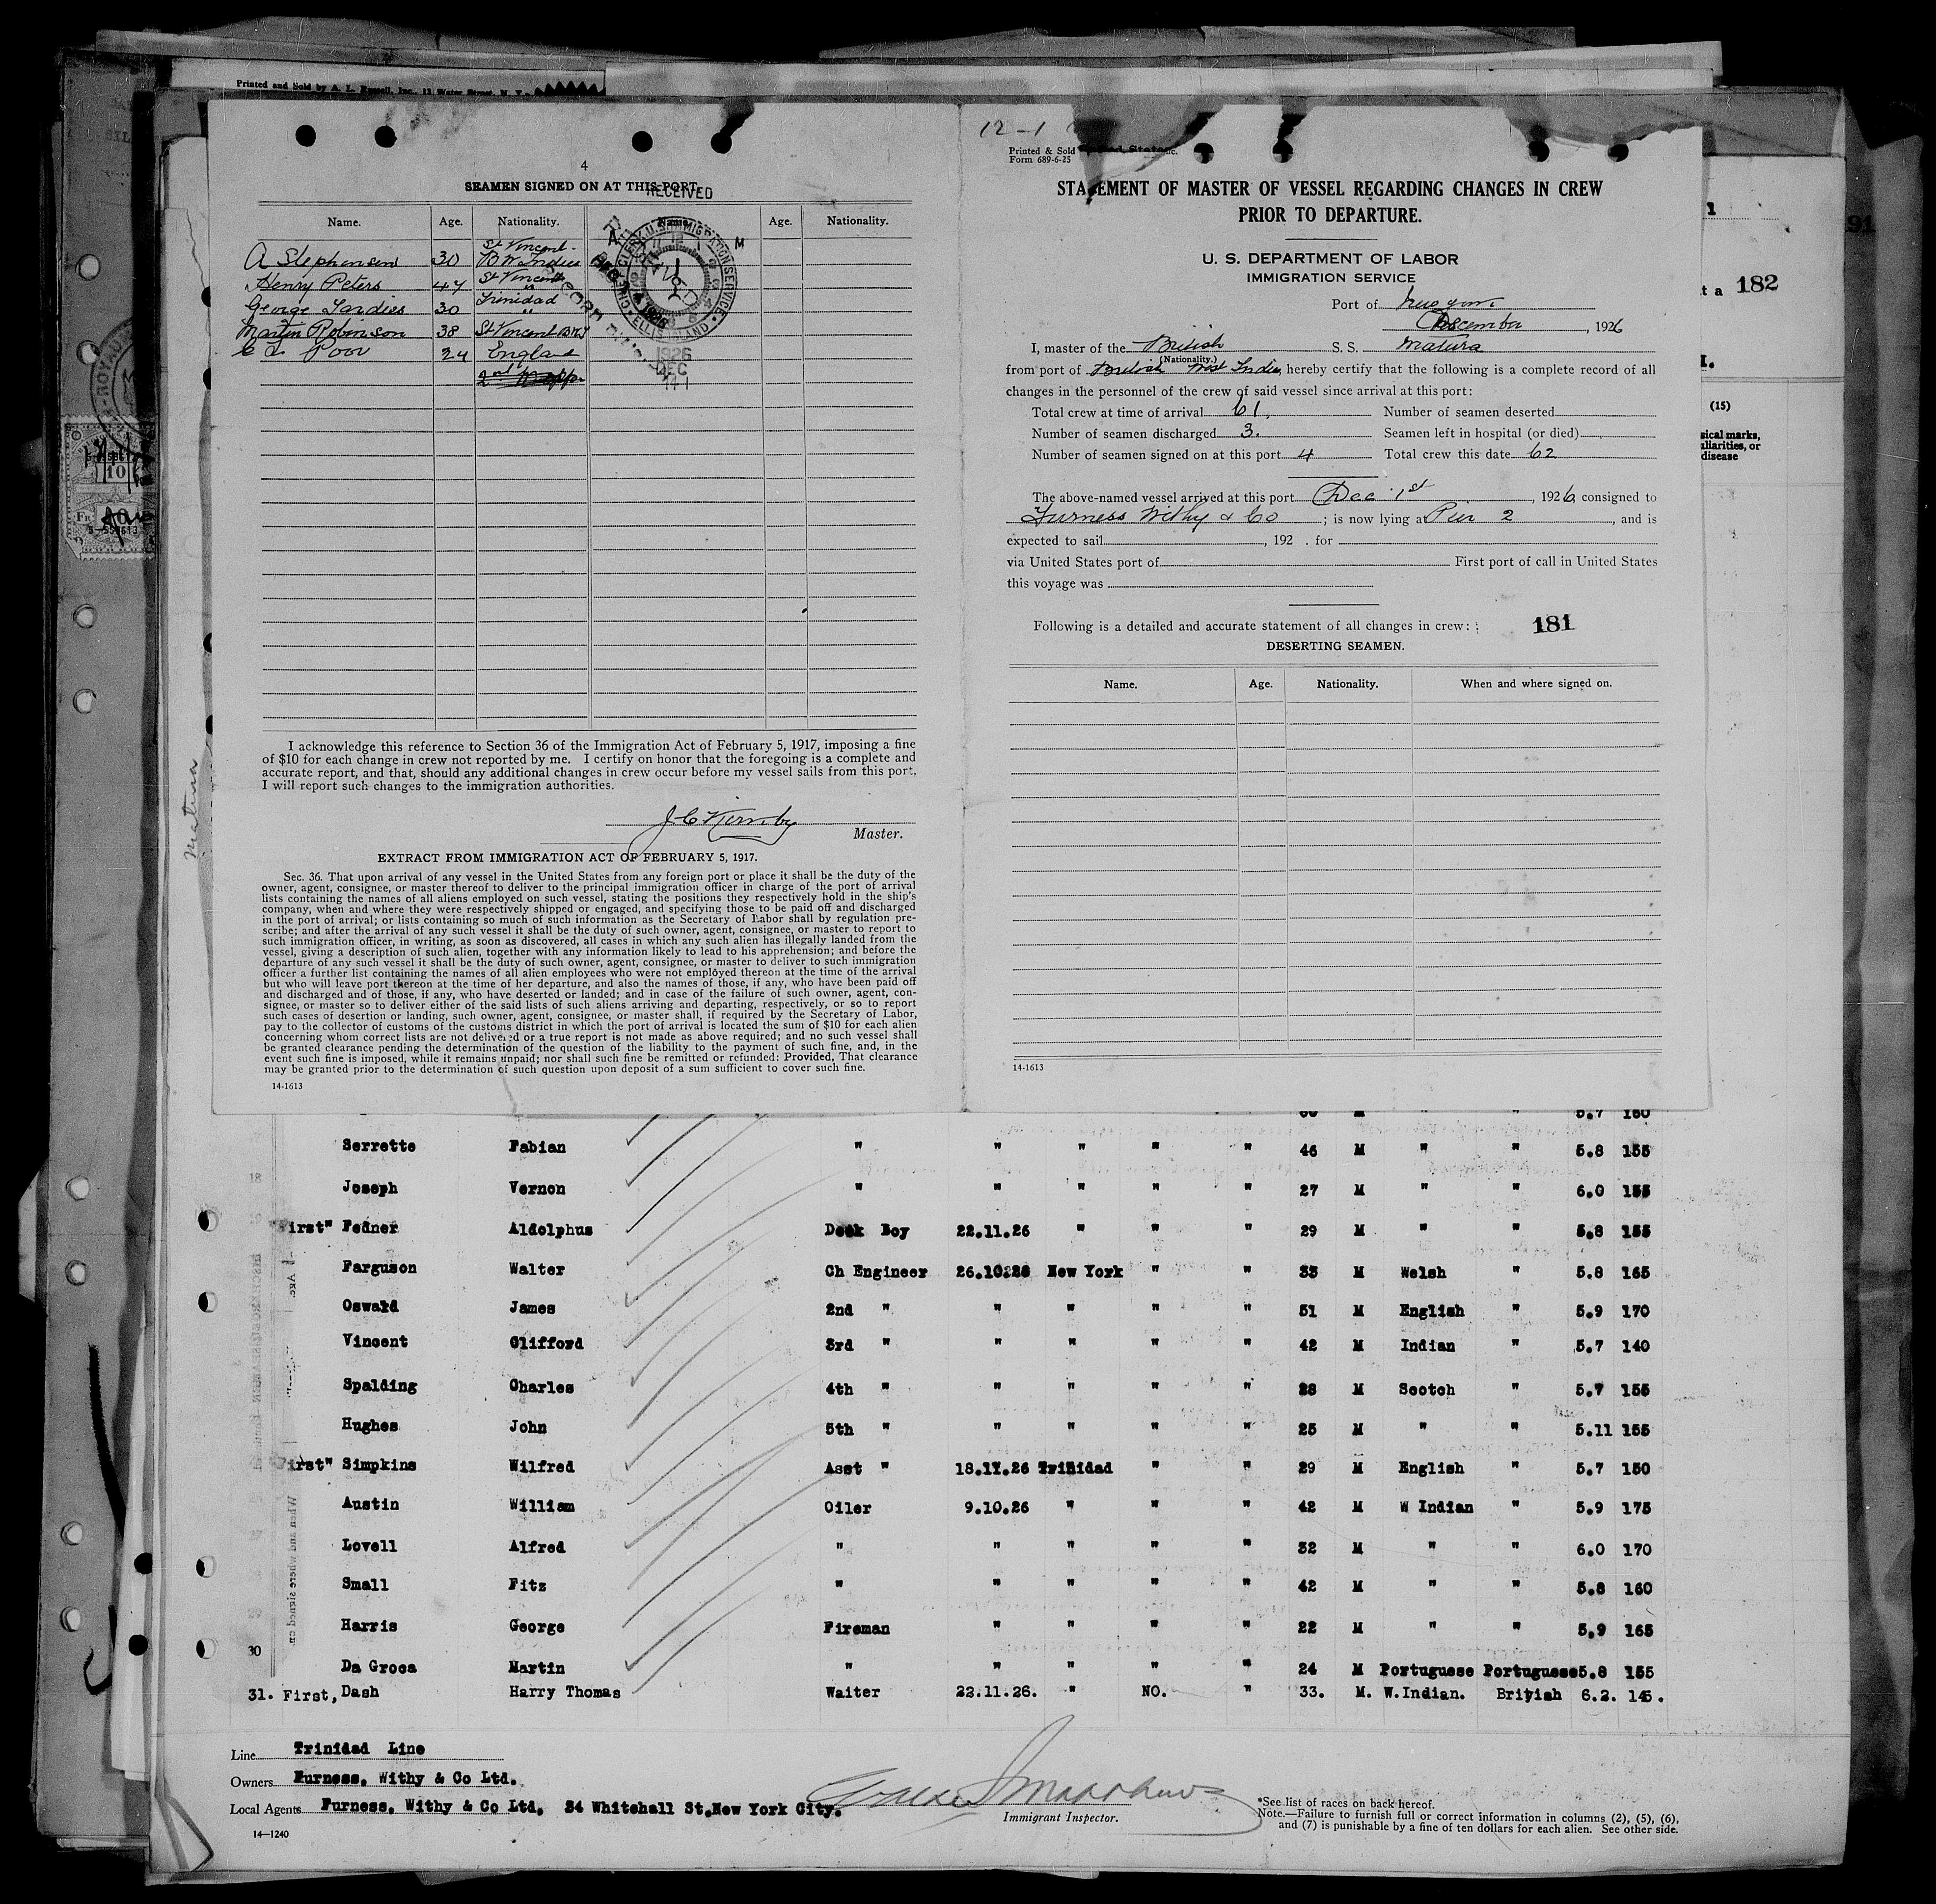 Printed and Sold by A. L. Russell, Inc., 13 Water Street, N. Y.
4
SEAMEN SIGNED ON AT THIS PORT.
RECEIVED
Name. Age. Nationality. Name. Age. Nationality.
A Stephenson 30 St Vincent B W Indies
Henry Peters 47 St Vincent "
George 30 Trinidad "
Martin Robinson 38 St Vincent BWI
C L Poor 24 England
U.S. IMMIGRATION SERVICE
ELLIS ISLAND
1926
DEC
I acknowledge this reference to Section 36 of the Immigration Act of February 5, 1917, imposing a fine
of $10 for each change in crew not reported by me. I certify on honor that the foregoing is a complete and
accurate report, and that, should any additional changes in crew occur before my vessel sails from this port,
I will report such changes to the immigration authorities.
Master.
EXTRACT FROM IMMIGRATION ACT OF FEBRUARY 5, 1917.
Sec. 36. That upon arrival of any vessel in the United States from any foreign port or place it shall be the duty of the
owner, agent, consignee, or master thereof to deliver to the principal immigration officer in charge of the port of arrival
lists containing the names of all aliens employed on such vessel, stating the positions they respectively hold in the ship's
company, when and where they were respectively shipped or engaged, and specifying those to be paid off and discharged
in the port of arrival; or lists containing so much of such information as the Secretary of Labor shall by regulation pre-
scribe; and after the arrival of any such vessel it shall be the duty of such owner, agent, consignee, or master to report to
such immigration officer, in writing, as soon as discovered, all cases in which any such alien has illegally landed from the
vessel, giving a description of such alien, together with any information likely to lead to his apprehension; and before the
departure of any such vessel it shall be the duty of such owner, agent, consignee, or master to deliver to such immigration
officer a further list containing the names of all alien employees who were not employed thereon at the time of the arrival
but who will leave port thereon at the time of her departure, and also the names of those, if any, who have been paid off
and discharged and of those, if any, who have deserted or landed; and in case of the failure of such owner, agent, con-
signee, or master so to deliver either of the said lists of such aliens arriving and departing, respectively, or so to report
such cases of desertion or landing, such owner, agent, consignee, or master shall, if required by the Secretary of Labor,
pay to the collector of customs of the customs district in which the port of arrival is located the sum of $10 for each alien
concerning whom correct lists are not delivered or a true report is not made as above required; and no such vessel shall
be granted clearance pending the determination of the question of the liability to the payment of such fine, and, in the
event such fine is imposed, while it remains unpaid; nor shall such fine be remitted or refunded: Provided, That clearance
may be granted prior to the determination of such question upon deposit of a sum sufficient to cover such fine.
14-1613
Matura
12-1
Printed & Sold
Form 689-6-25
STATEMENT OF MASTER OF VESSEL REGARDING CHANGES IN CREW
PRIOR TO DEPARTURE.
U. S. DEPARTMENT OF LABOR
IMMIGRATION SERVICE
Port of New York
December, 1926
I, master of the British S. S. Matura
(Nationality.)
from port of British West Indies, hereby certify that the following is a complete record of all
changes in the personnel of the crew of said vessel since arrival at this port:
Total crew at time of arrival 61. Number of seamen deserted
Number of seamen discharged 3. Seamen left in hospital (or died)
Number of seamen signed on at this port 4 Total crew this date 62
The above-named vessel arrived at this port Dec 1st, 1926 consigned to
Furness Withy & Co; is now lying at Pier 2, and is
expected to sail, 192 . for
via United States port of First port of call in United States
this voyage was
Following is a detailed and accurate statement of all changes in crew:
181
DESERTING SEAMEN.
Name. Age. Nationality. When and where signed on.
14-1613
1
91
t a 182
(15)
sical marks,
uliarities, or
disease
5.7 160
Serrette Fabian " " " " " 46 M " " 5.8 155
Joseph Vernon " " " " " 27 M " " 6.0 155
irst" Fedner Aldolphus Deck Boy 22.11.26 " " " 29 M " " 5.8 155
Farguson Walter Ch Engineer 26.10.26 New York " " 33 M Welsh " 5.8 165
Oswald James 2nd " " " " " 51 M English " 5.9 170
Vincent Clifford 3rd " " " " " 42 M Indian " 5.7 140
Spalding Charles 4th " " " " " 28 M Scotch " 5.7 155
Hughes John 5th " " " " " 25 M " " 5.11 155
irst" Simpkins Wilfred Asst " 18.11.26 Trinidad " " 29 M English " 5.7 150
Austin William Oiler 9.10.26 " " " 42 M W Indian " 5.9 175
Lovell Alfred " " " " " 32 M " " 6.0 170
Small Fitz " " " " " 42 M " " 5.8 160
Harris George Fireman " " " " 22 M " " 5.9 165
30 Da Groca Martin " " " " " 24 M Portuguese Portuguese 5.8 155
31. First, Dash Harry Thomas Waiter 22.11.26. " NO. " 33. M. W.Indian. British 6.2. 145.
Line Trinidad Line
Owners Furness, Withy & Co Ltd.
Local Agents Furness, Withy & Co Ltd, 34 Whitehall St,New York City.
Immigrant Inspector.
14-1240
*See list of races on back hereof.
Note.—Failure to furnish full or correct information in columns (2), (5), (6),
and (7) is punishable by a fine of ten dollars for each alien. See other side.